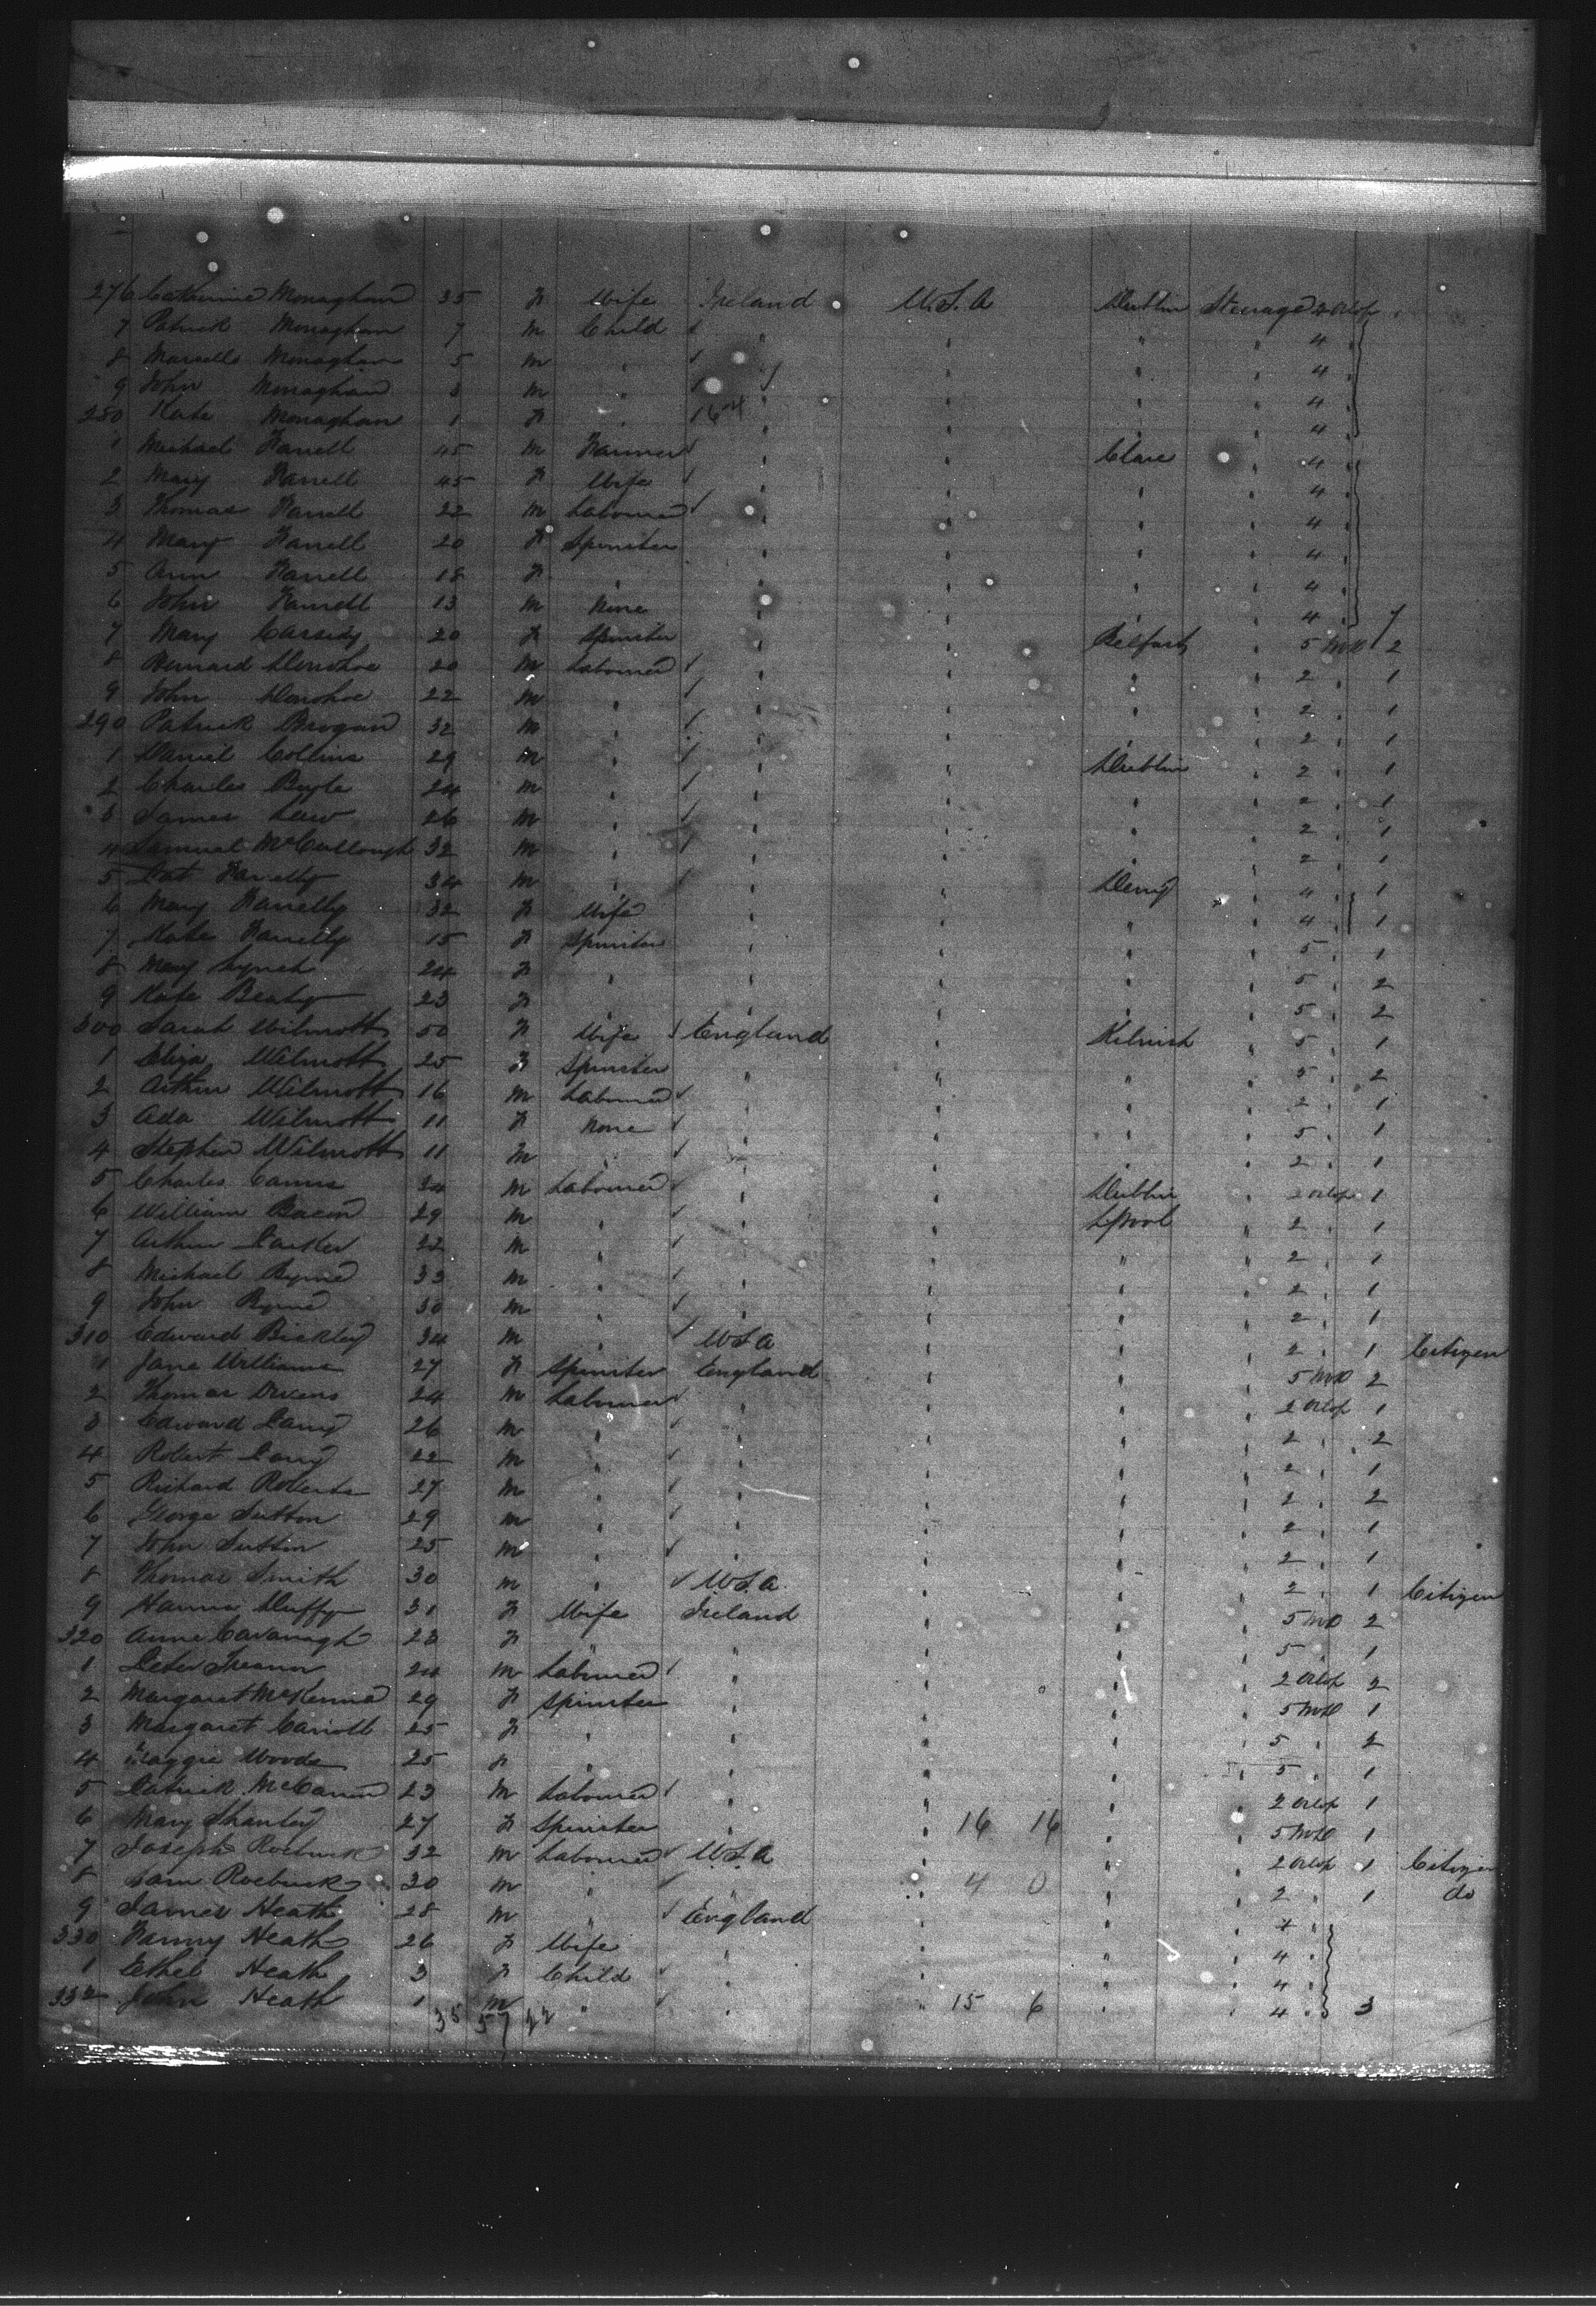 276 Catherine Monaghan 35 F Wife Ireland U.S.A Dublin Steerage 4 Orlop
7 Patrick Monaghan 7 M Child " " " " 4 "
8 Marcella Monaghan 5 M " " " " " 4 "
9 John Monaghan 3 M " " " " " 4 "
280 Kate Monaghan 1 F " " " " " 4 "
1 Michael Farrell 45 M Farmer " " Clare " 4 "
2 Mary Farrell 45 F Wife " " " " 4 "
3 Thomas Farrell 22 M Labourer " " " " 4 "
4 Mary Farrell 20 F Spinster " " " " 4 "
5 Ann Farrell 18 F " " " " " 4 "
6 John Farrell 13 M None " " " " 4 " 7
7 Mary Cassidy 20 F Spinster " " Belfast " 5 2
8 Bernard Donohoe 20 M Labourer " " " " 2 " 1
9 John Donohoe 22 M " " " " " 2 " 1
290 Patrick Brogan 32 M " " " " " 2 " 1
1 Daniel Collins 29 M " " " Dublin " 2 " 1
2 Charles Boyle 24 M " " " " " 2 " 1
3 James Law 26 M " " " " " 2 " 1
4 Samuel McCullough 32 M " " " " " 2 " 1
5 Pat Farrelly 34 M " " " Derry " 4 " 1
6 Mary Farrelly 32 F Wife " " " " 4 " 1
7 Kate Farrelly 15 F Spinster " " " " 5 " 1
8 Mary Lynch 24 F " " " " " 5 " 2
9 Kate Beaty 23 F " " " " " 5 " 2
300 Sarah Wilmott 50 F Wife England " " 5 " 1
1 Eliza Wilmott 25 F Spinster " " " " 5 " 2
2 Arthur Wilmott 16 M Labourer " " " " 2 " 1
3 Ada Wilmott 11 F None " " " " 5 " 1
4 Stephen Wilmott 11 M " " " " " 2 " 1
5 Charles 34 M Labourer " " Dublin " 2 Orlop 1
6 William Bacon 29 M " " " LPool " 2 " 1
7 Arthur 22 M " " " " " 2 " 1
8 Michael Byrne 33 M " " " " " 2 " 1
9 John Byrne 30 M " " " " " 2 " 1
310 Edward Bickley 34 M " U.S.A " " " 2 " 1 Citizen
1 Jane Williams 27 F Spinster England " " " 5 2
2 Thomas 24 M Labourer " " " " 2 Orlop 1
3 Edward 26 M " " " " " 2 " 2
4 Robert 22 M " " " " " 2 " 1
5 Richard Roberts 27 M " " " " " 2 " 2
6 George Sutton 29 M " " " " " 2 " 1
7 John Sutton 25 M " " " " " 2 " 1
8 Thomas Smith 30 M " U.S.A. " " " 2 " 1 Citizen
9 Hanna Duffy 31 F Wife Ireland " " " 5 2
320 Anne Cavanagh 23 F " " " " " 5 " 1
1 Peter Treanor 24 M Labourer " " " " 2 Orlop 2
2 Margaret McKenna 29 F Spinster " " " " 5 1
3 Margaret Carroll 25 F " " " " " 5 " 2
4 Maggie Woods 25 F " " " " " 5 " 1
5 Patrick McCann 23 M Labourer " " " " 2 Orlop 1
6 Mary Shanley 27 F Spinster " " 16 16 " " 5 1
7 Joseph Roebuck 32 M Labourer U.S.A " " " 2 Orlop 1 Citizen
8 Sam Roebuck 20 M " " " 4 0 " " 2 " 1 do
9 James Heath 28 M " England " " " 4 "
330 Fanny Heath 26 F Wife " " " " 4 "
1 Ethel Heath 3 F Child " " " " 4 "
332 John Heath 1 M " " " 15 6 " " 4 " 3
35 57 22